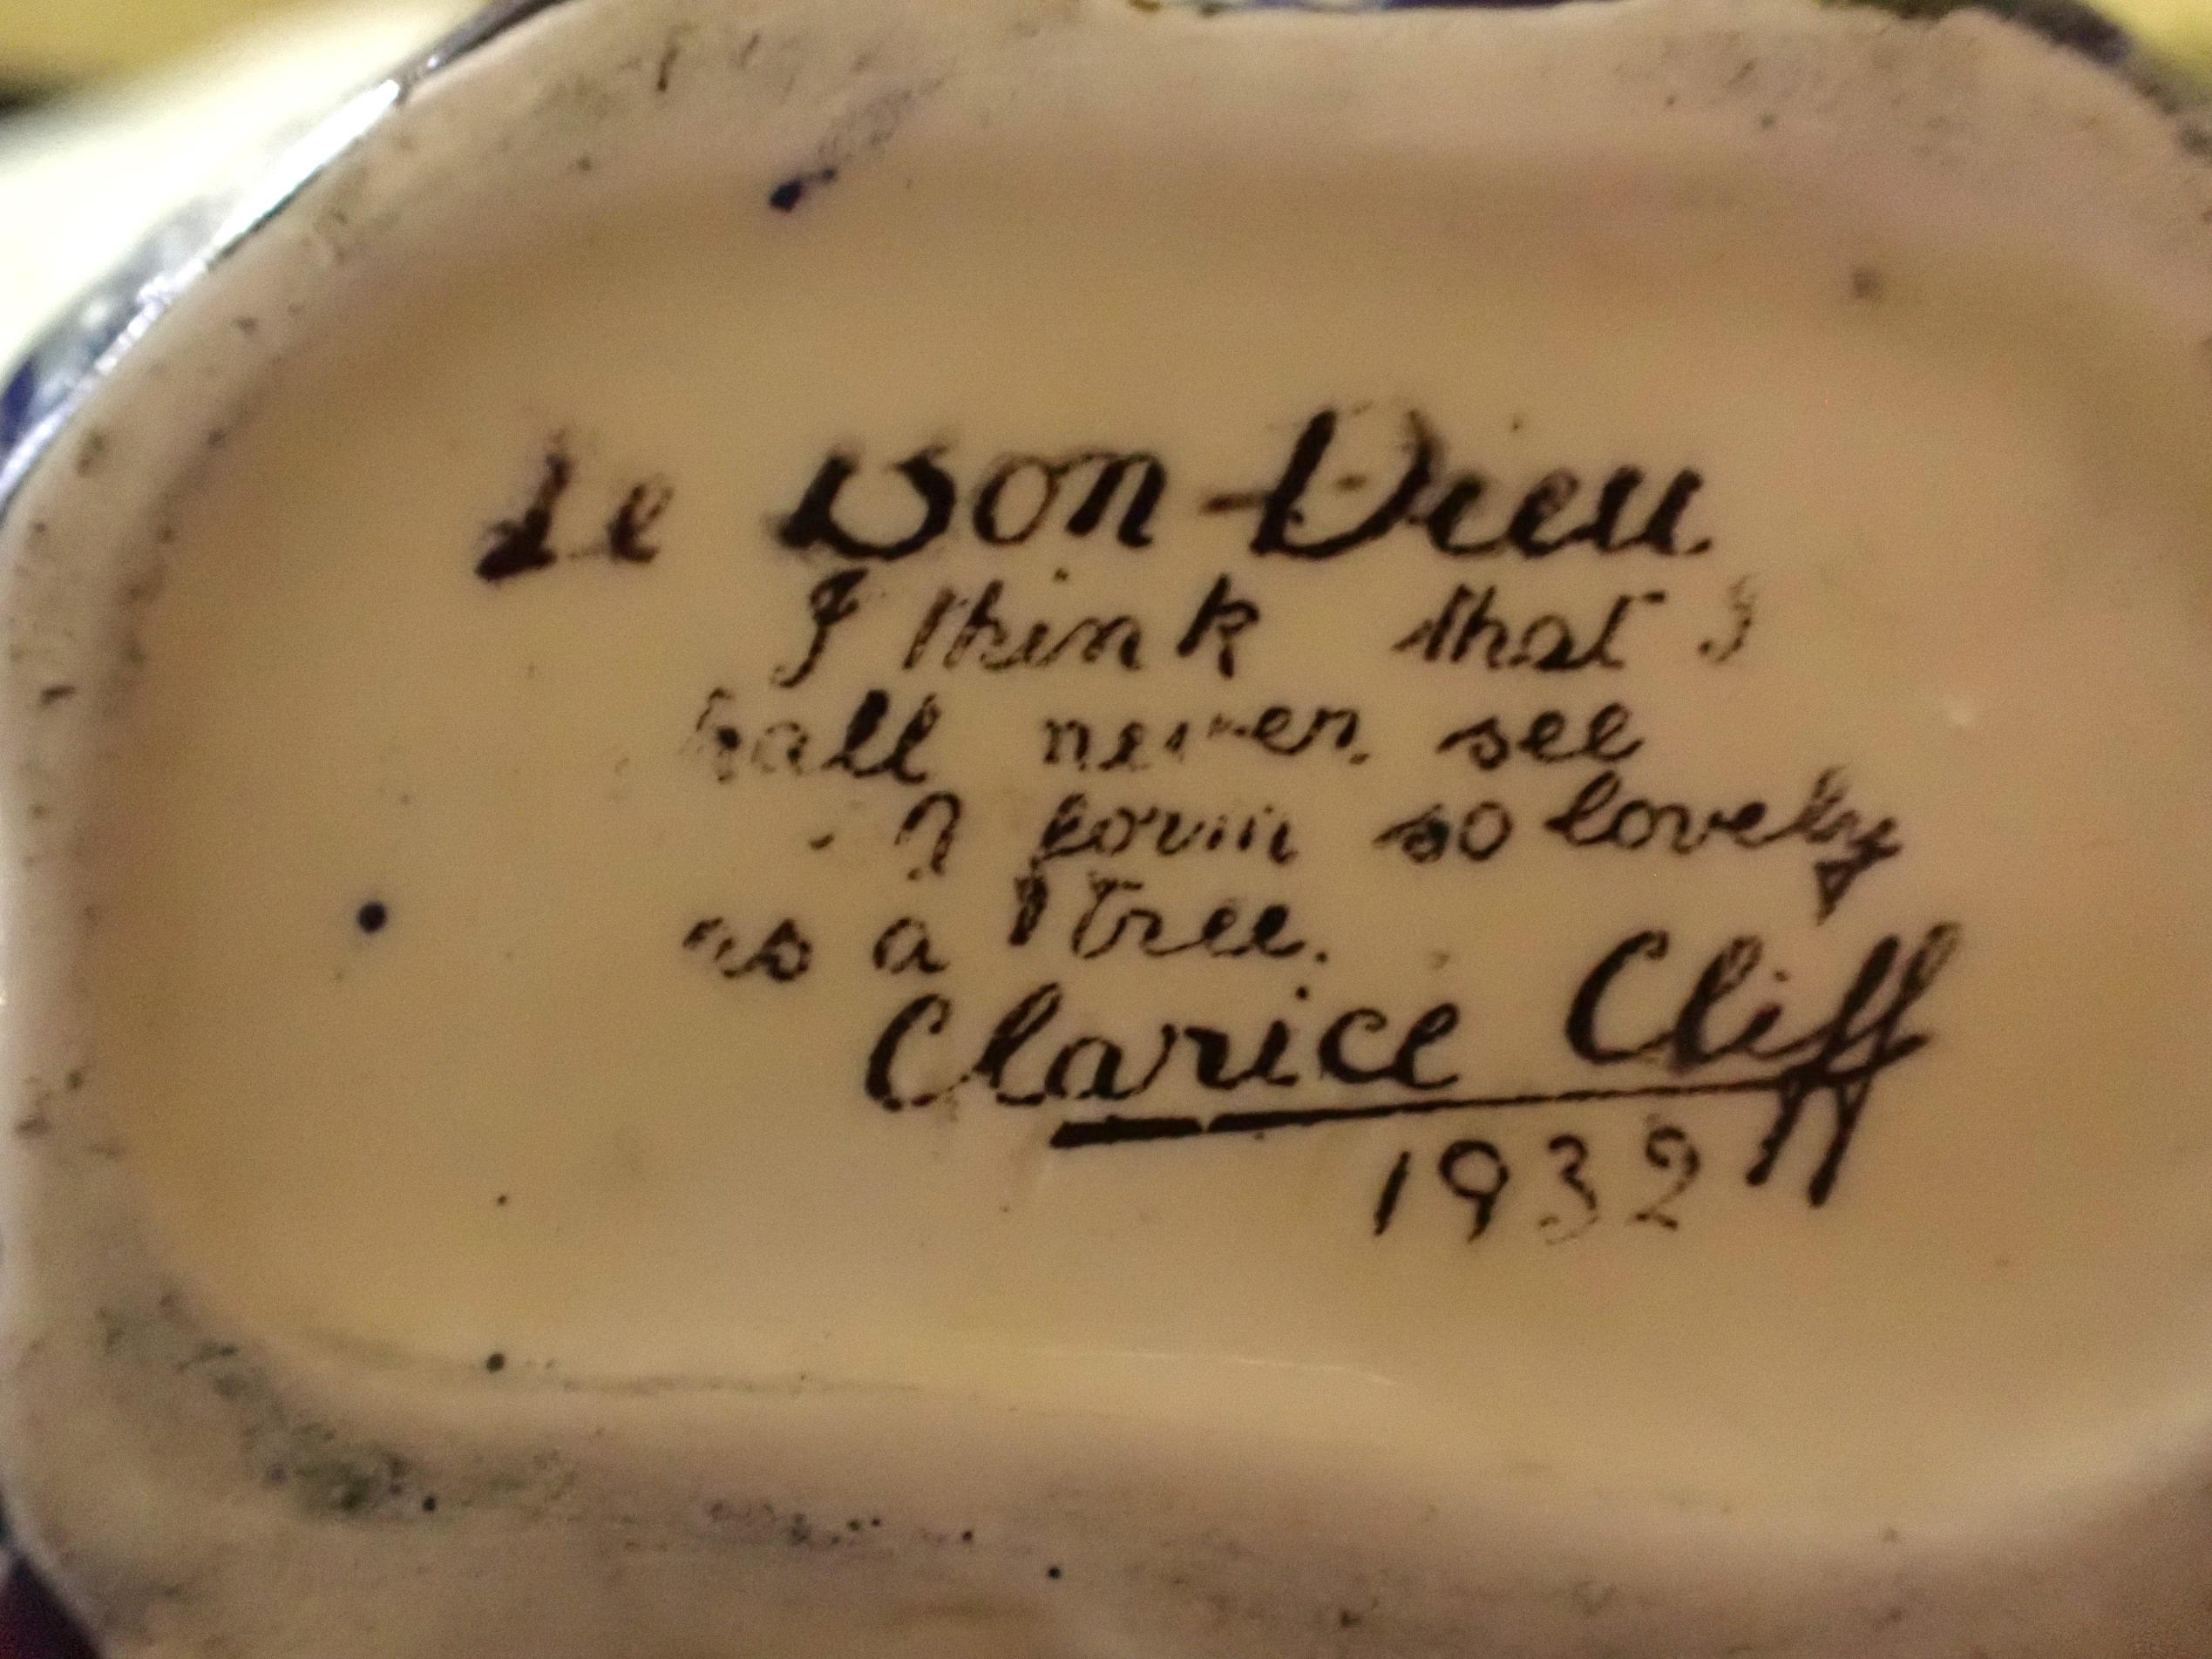 Le Bon-Dieu
I think that I
shall never see
A form so lovely
as a tree.
Clarice Cliff
1932